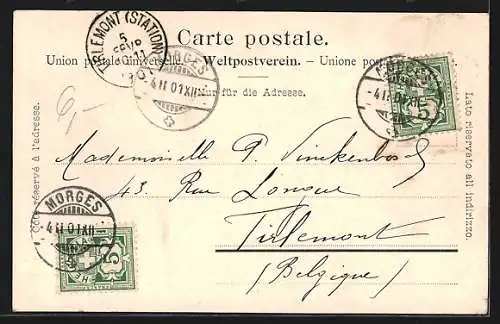 Carte postale.
Union postale universelle. – Weltpostverein. – Unione postale
Nur für die Adresse.
Côté réservé à l'adresse.
Lato riservato all indirizzo.
TIRLEMONT (STATION)
5
FEVR
MORGES
-4 II 01 XII
6,-
Mademoiselle P. Vinckenbosch
43. Rue Longue
Tirlemont
(Belgique)
MORGES
-4 II 01 XII
5
-4 II 01 XII
5